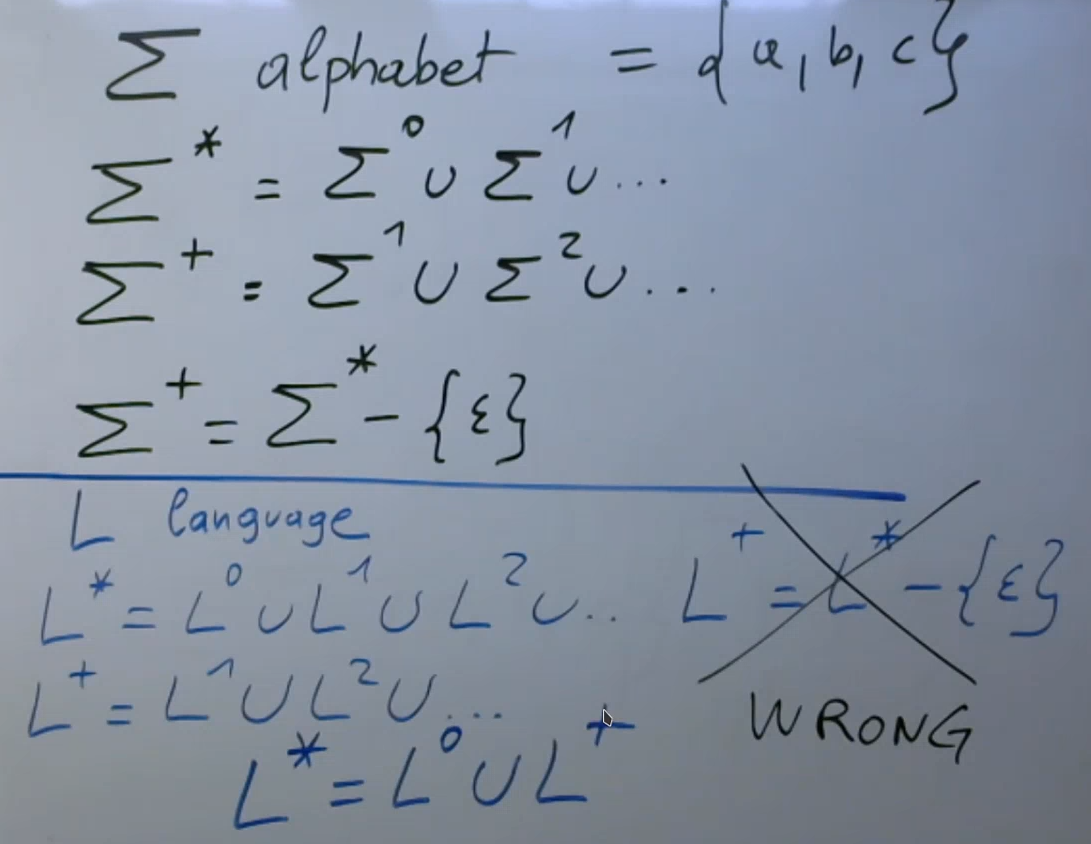 Σ alphabet = {a, b, c}
Σ* = Σ⁰ ∪ Σ¹ ∪ ...
Σ⁺ = Σ¹ ∪ Σ² ∪ ...
Σ⁺ = Σ* - {ε}
L language
L* = L⁰ ∪ L¹ ∪ L² ∪ ..
L⁺ = L* - {ε}
L⁺ = L¹ ∪ L² ∪ ...
WRONG
L* = L⁰ ∪ L⁺